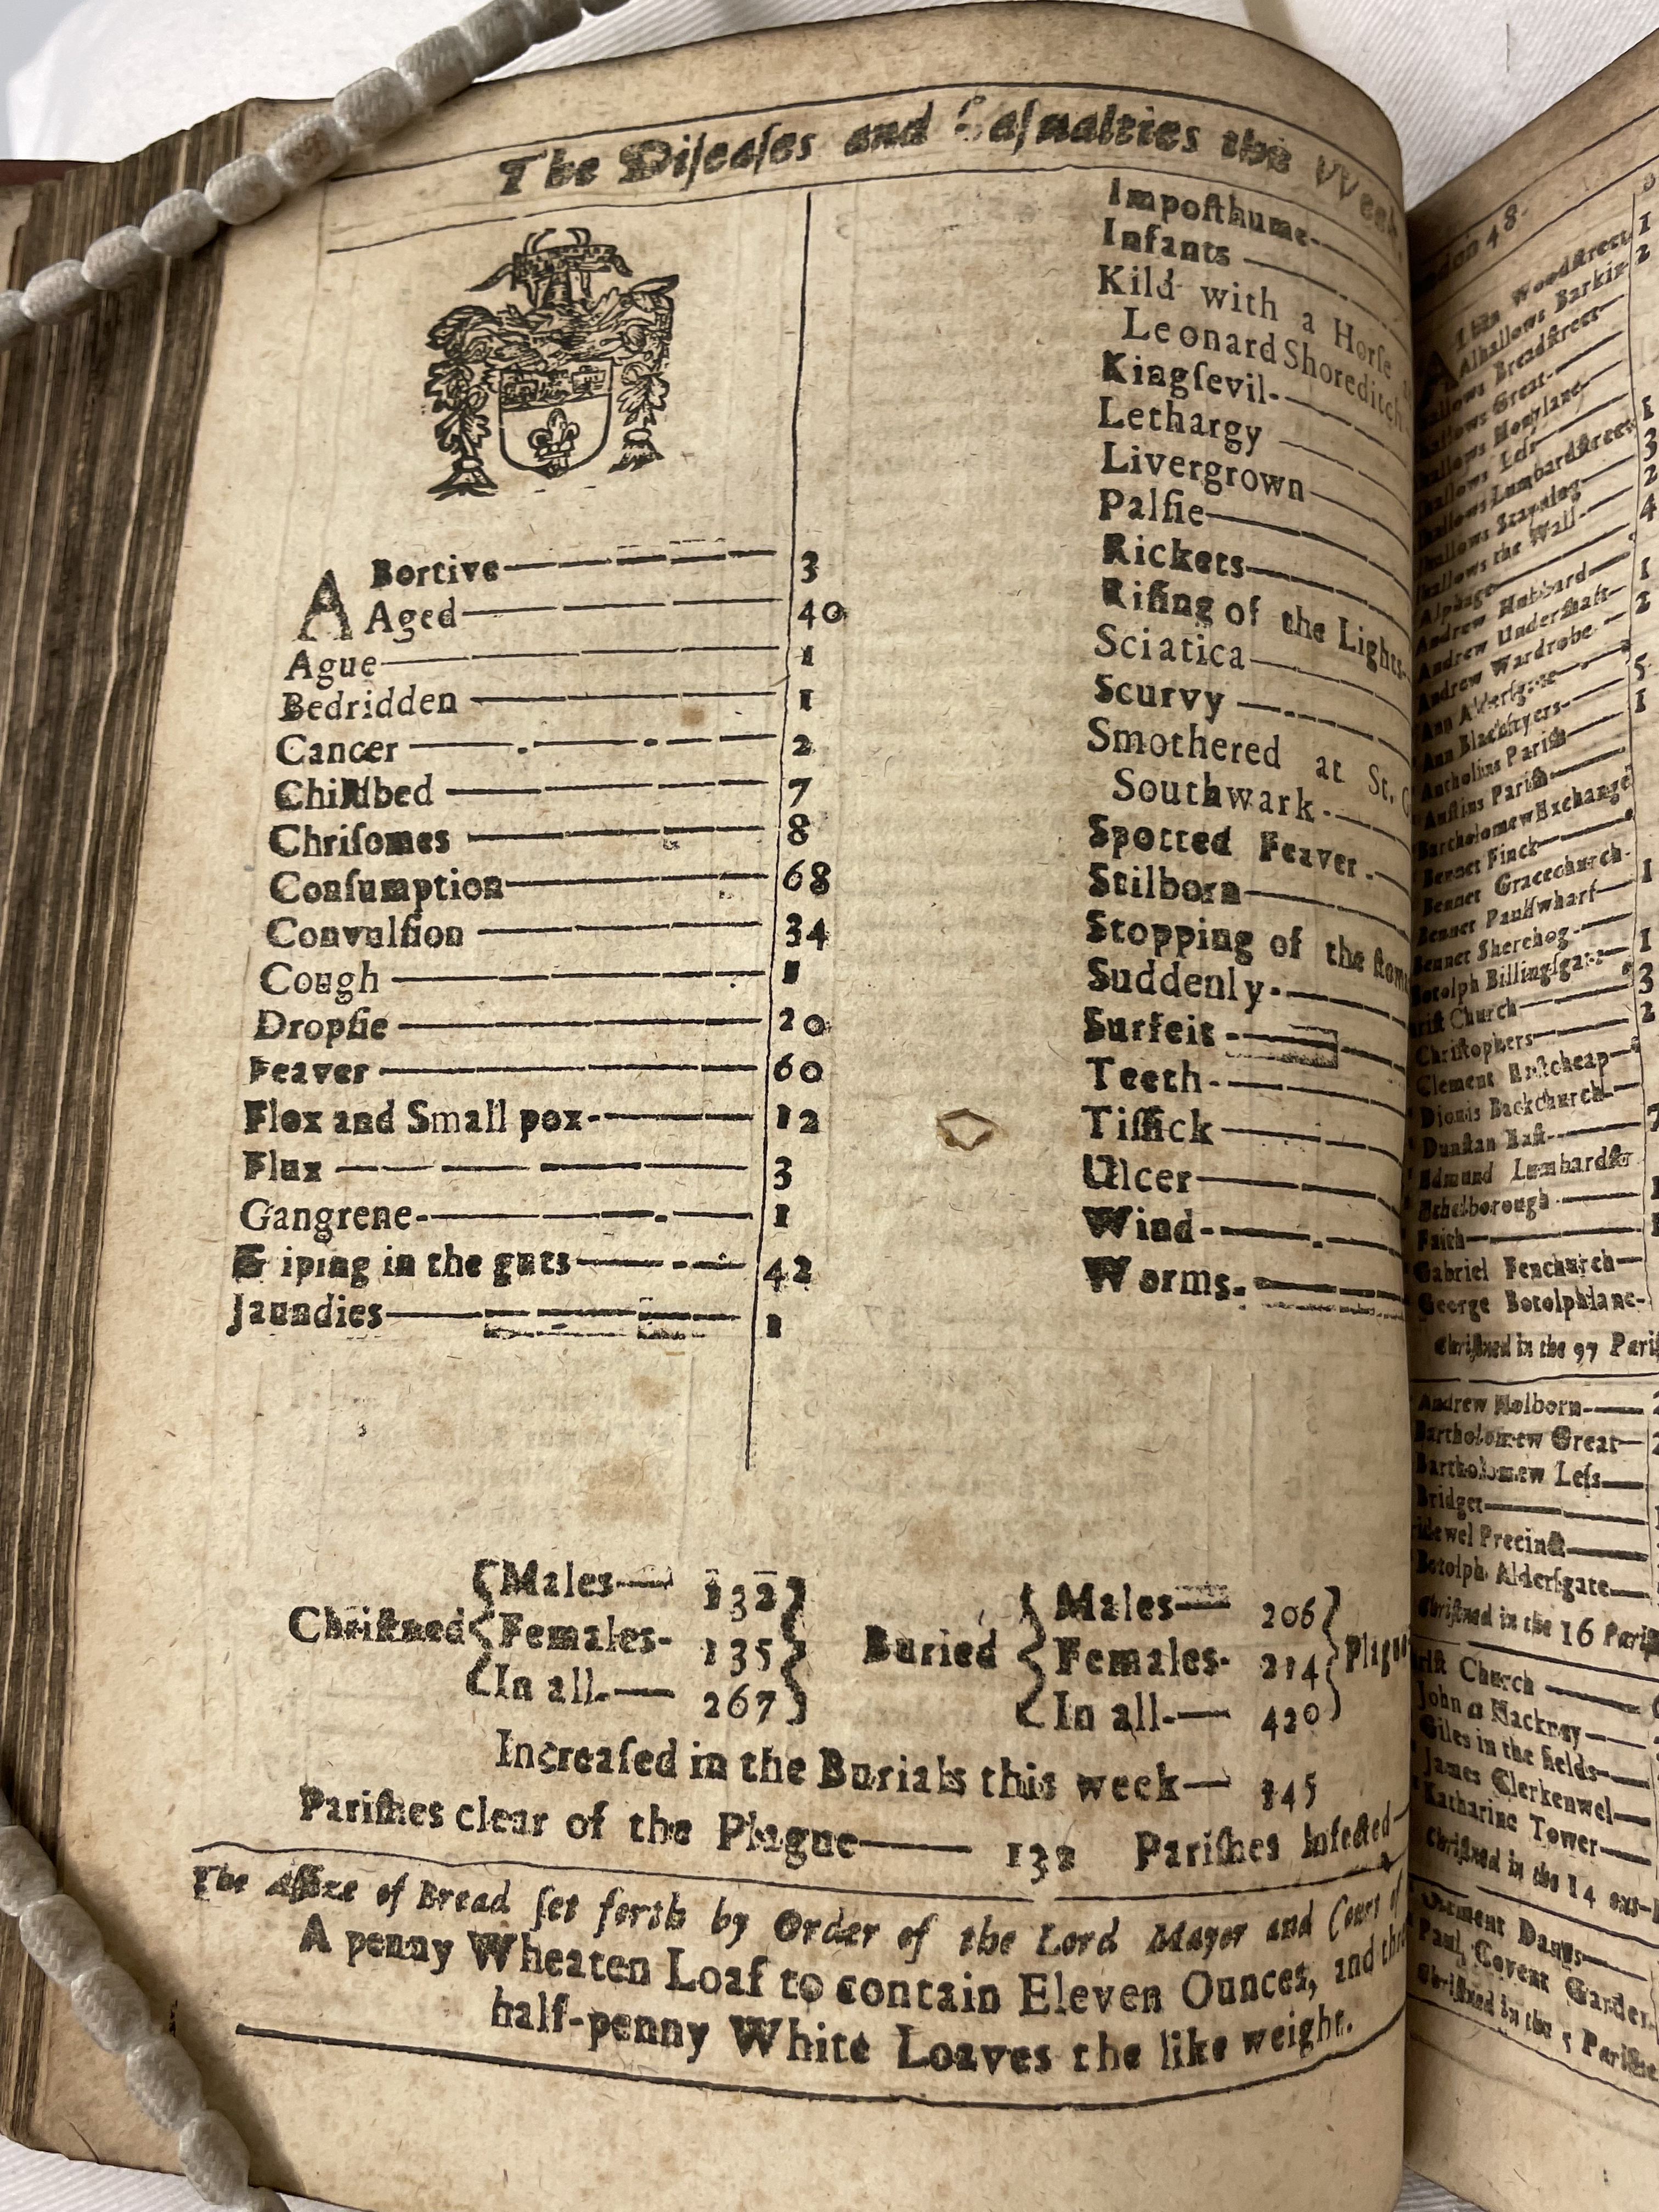 The Diſeaſes and Caſualties this Week.
ABortive 3
Aged 40
Ague 1
Bedridden 1
Cancer 2
Childbed 7
Chriſomes 8
Conſumption 68
Convulſion 34
Cough 1
Dropſie 20
Feaver 60
Flox and Small pox 12
Flux 3
Gangrene 1
Griping in the guts 42
Jaundies 1
Impoſthume
Infants
Kild with a Horſe
Leonard Shoreditch
Kingſevil
Lethargy
Livergrown
Palſie
Rickets
Riſing of the Lights
Sciatica
Scurvy
Smothered at St.
Southwark
Spotted Feaver
Stilborn
Stopping of the
Suddenly
Surfeit
Teeth
Tiſſick
Ulcer
Wind
Worms
Chriſtned Males 132
Females 135
In all 267
Buried Males 206
Females 214
In all 420
Increaſed in the Burials this week 145
Pariſhes clear of the Plague Pariſhes Infected
The Aſſize of Bread ſet forth by Order of the Lord Mayor and Court of
A penny Wheaten Loaf to contain Eleven Ounces, and
half-penny White Loaves the like weight.
48
Woodſtreet 1
Alhallows Barkin 2
Breadſtreet
Great
Honylane
Leſs 1
Lumbardſtreet 3
Stayning 2
the Wall 4
Alphage
Andrew Hubbard 1
Andrew Underſhaft 2
Andrew Wardrobe
Ann Alderſgate 5
Ann Blackfryers 1
Antholins Pariſh
Auſtins Pariſh
Bartholomew Exchange
Bennet Finck
Bennet Gracechurch
Bennet Paulſwharf 1
Bennet Sherehog
Botolph Billingſgate 1
Church 3
Chriſtophers 2
Clement Eaſtcheap
Dionis Backchurch
Dunſtan Eaſt 7
Edmund Lumbardſtr
Ethelborough
Faith
Gabriel Fenchurch
George Botolphlane
Chriſtned in the 97
Andrew Holborn
Bartholomew Great
Bartholomew Leſs
Bridget
Precinct
Botolph Alderſgate
Chriſtned in the 16
Church
John at Hackney
Giles in the fields
James Clerkenwel
Katharine Tower
Chriſtned in the 14
Clement Danes
Paul Covent Garden
Chriſtned in the 5